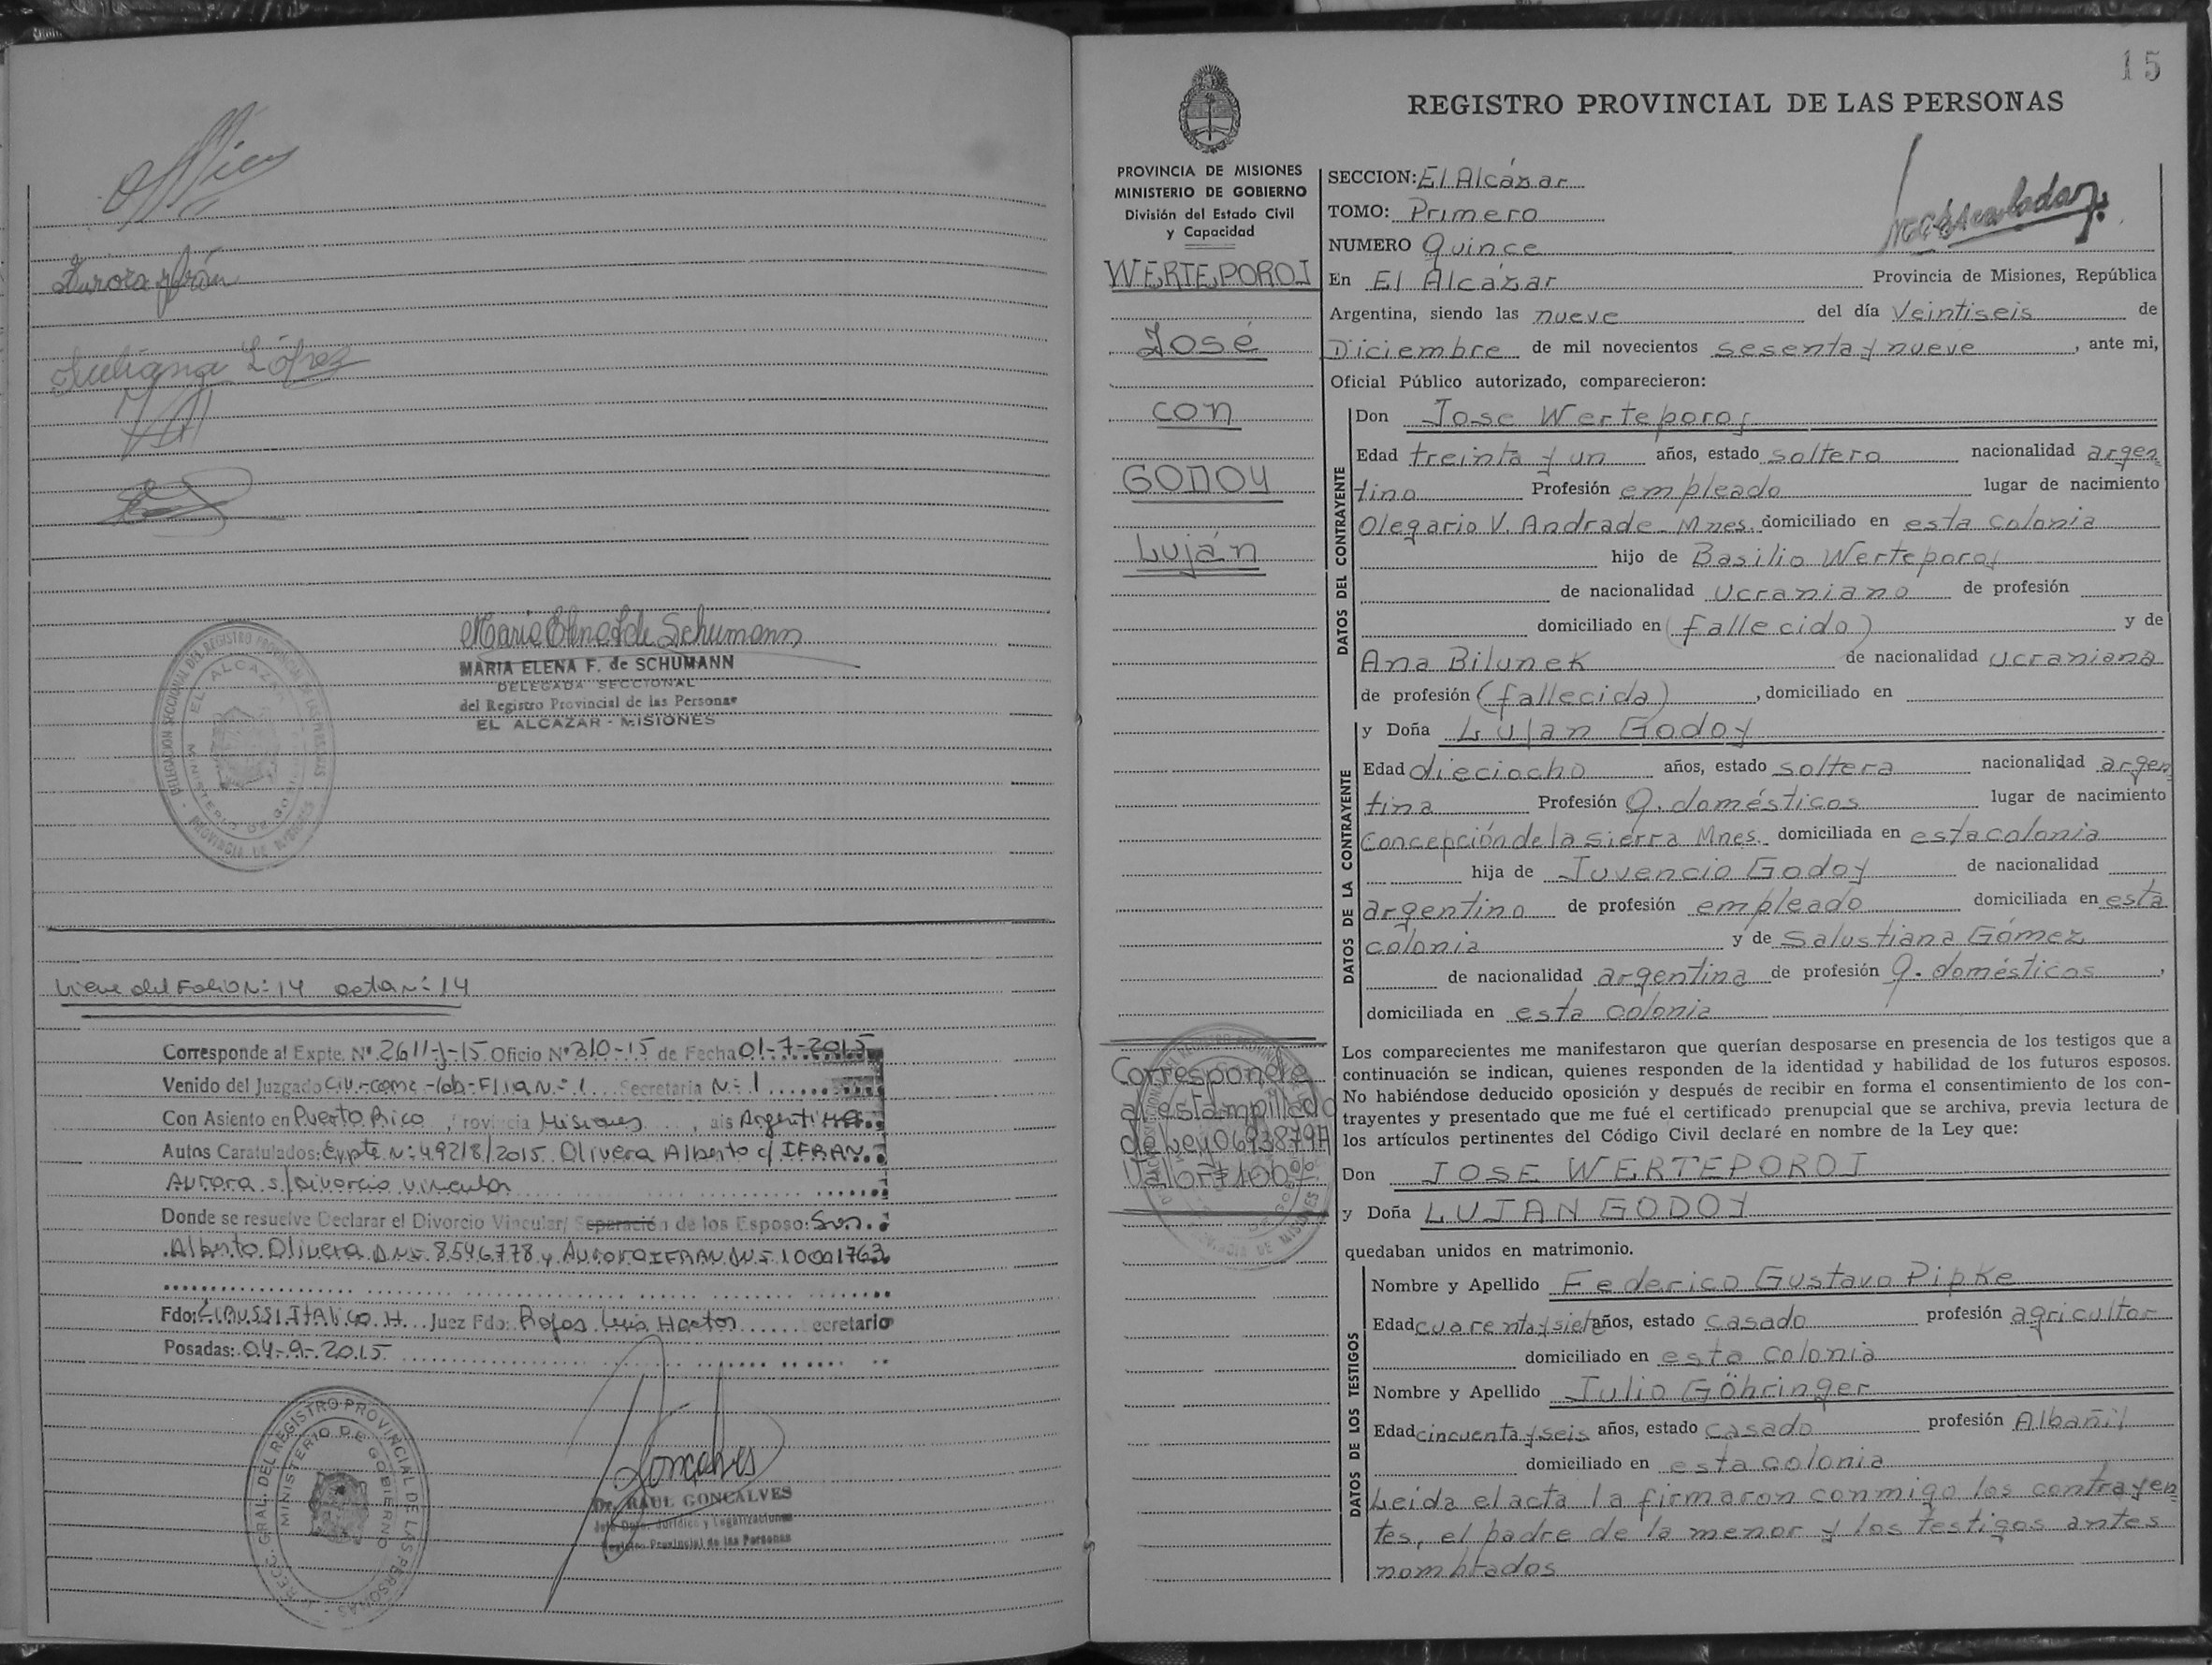 Aurora Ifrán
Juliana López
María Elena F. de Schumann
MARIA ELENA F. de SCHUMANN
DELEGADA SECCIONAL
del Registro Provincial de las Personas
EL ALCAZAR - MISIONES
DELEGACION SECCIONAL DEL REGISTRO PROVINCIAL DE LAS PERSONAS
EL ALCAZAR
MINISTERIO DE GOBIERNO
PROVINCIA DE MISIONES
Viene del Folio N:14 acta N:14
Corresponde al Expte. Nº 2611-J-15 Oficio Nº 310-15 de Fecha 01-7-2015
Venido del Juzgado Civ-Come-Lab-Flia N:1 Secretaria N:1
Con Asiento en Puerto Rico, Provincia Misiones, ais Argentina
Autos Caratulados: Expte N:49218/2015 Olivera Alberto c/ IFRAN
Aurora s/divorcio vincular
Donde se resuelve Declarar el Divorcio Vincular/ Separación de los Esposo: Sres.
Alberto Olivera DNI: 8.546.778 y Aurora IFRAN DNI: 10001763
Fdo: ITALICO H. Juez Fdo: Rojas Luis Hector ecretario
Posadas: 04-9-2015
DIREC. GRAL. DEL REGISTRO PROVINCIAL DE LAS PERSONAS
MINISTERIO DE GOBIERNO
Goncalves
Dr. RAUL GONCALVES
Jefe Dpto. Jurídico y Legalizaciones
Registro Provincial de las Personas
15
REGISTRO PROVINCIAL DE LAS PERSONAS
PROVINCIA DE MISIONES
MINISTERIO DE GOBIERNO
División del Estado Civil
y Capacidad
WERTEPOROJ
José
con
GODOY
Luján
Corresponde
al estampillado
de Ley 0693879A
Valor \$ 100%
SECCION: El Alcázar
TOMO: Primero
NUMERO Quince
En El Alcázar Provincia de Misiones, República
Argentina, siendo las nueve del día Veintiseis de
Diciembre de mil novecientos sesenta y nueve, ante mi,
Oficial Público autorizado, comparecieron:
DATOS DEL CONTRAYENTE
Don Jose Werteporoj
Edad treinta y un años, estado soltero nacionalidad argen
tino Profesión empleado lugar de nacimiento
Olegario V. Andrade-Mnes. domiciliado en esta colonia
hijo de Basilio Werteporoj
de nacionalidad Ucraniano de profesión
domiciliado en (fallecido) y de
Ana Bilunek de nacionalidad ucraniana
de profesión (fallecida), domiciliado en
DATOS DE LA CONTRAYENTE
y Doña Lujan Godoy
Edad dieciocho años, estado soltera nacionalidad argen
tina Profesión Q. domésticos lugar de nacimiento
Concepción de la Sierra Mnes. domiciliada en esta colonia
hija de Juvencio Godoy de nacionalidad
argentino de profesión empleado domiciliada en esta
colonia y de Salustiana Gómez
de nacionalidad argentina de profesión Q. domésticos,
domiciliada en esta colonia
Los comparecientes me manifestaron que querían desposarse en presencia de los testigos que a
continuación se indican, quienes responden de la identidad y habilidad de los futuros esposos.
No habiéndose deducido oposición y después de recibir en forma el consentimiento de los con-
trayentes y presentado que me fué el certificado prenupcial que se archiva, previa lectura de
los artículos pertinentes del Código Civil declaré en nombre de la Ley que:
Don JOSE WERTEPOROJ
y Doña LUJAN GODOY
quedaban unidos en matrimonio.
DATOS DE LOS TESTIGOS
Nombre y Apellido Federico Gustavo Pipke
Edad cuarenta y siete años, estado casado profesión agricultor
domiciliado en esta colonia
Nombre y Apellido Julio Göhringer
Edad cincuenta y seis años, estado casado profesión Albañil
domiciliado en esta colonia
Leida el acta la firmaron conmigo los contrayen
tes, el padre de la menor y los testigos antes
nombrados